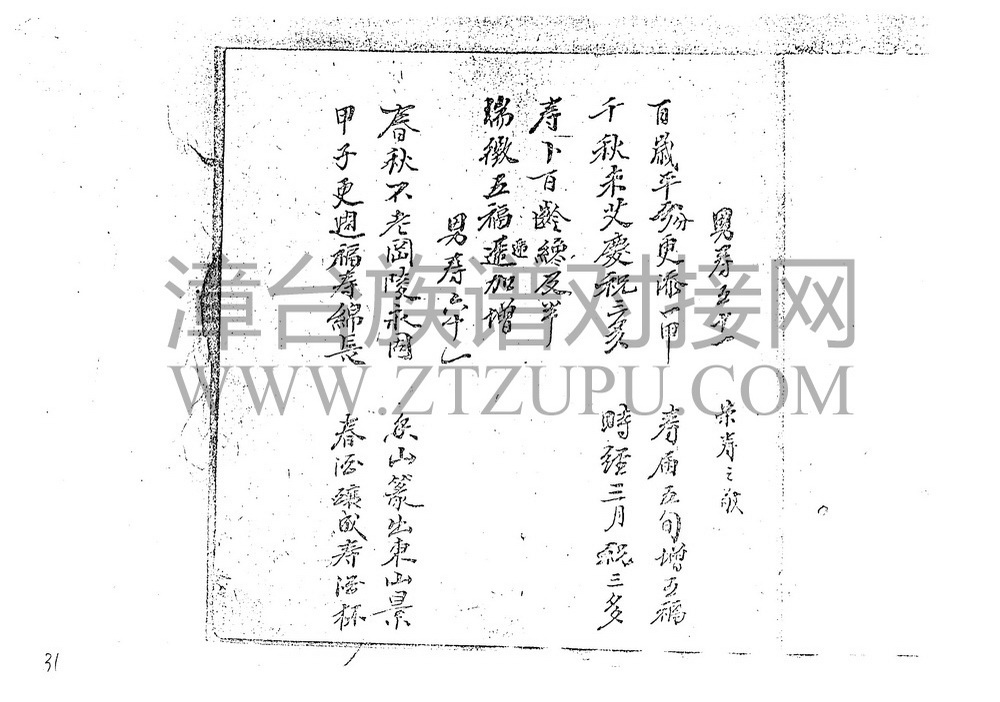 男寿五十一 荣寿之敬
百歲平分更添一甲 寿届五旬增五福
千秋来艾慶祝三多 時經三月祝三多
寿卜百齡纔及半
瑞徵五福遞加增
遞
男寿六十一
春秋不老岡陵永固 山篆出東山景
甲子更週福寿綿長 春酒釀成寿酒杯
漳台族谱对接网
WWW.ZTZUPU.COM
31